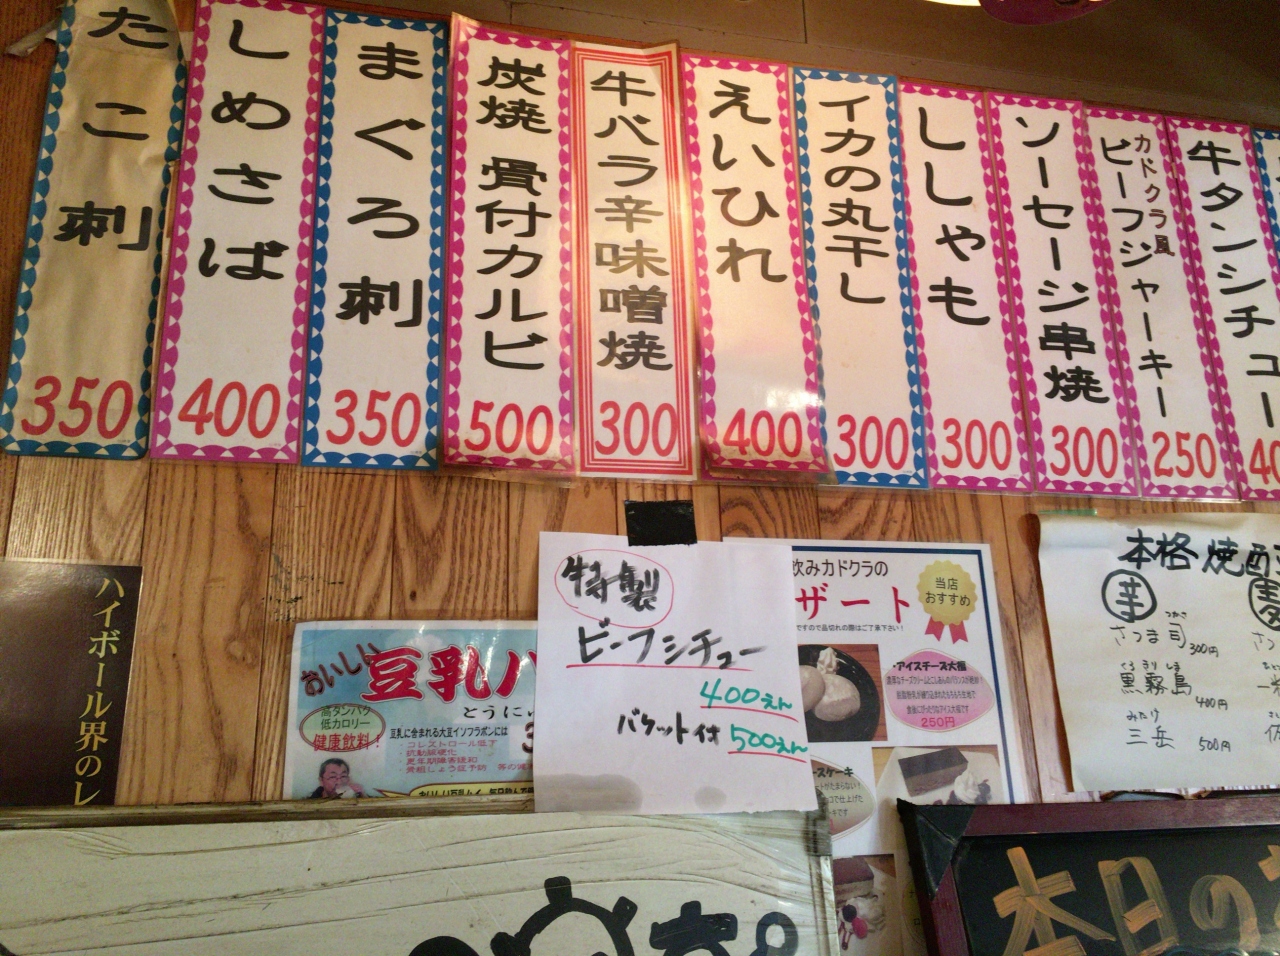 たこ刺
350
しめさば
400
まぐろ刺
350
炭焼 骨付カルビ
500
牛バラ辛味噌焼
300
えいひれ
400
イカの丸干し
300
ししゃも
300
ソーセージ串焼
300
カドクラ風
ビーフジャーキー
250
牛タンシチュー
ハイボール界のレ
おいしい
豆乳ハ
高タンパク
低カロリー
健康飲料!
豆乳に含まれる大豆イソフラボンには
コレストロール低下
抗動脈硬化
更年期障害緩和
骨粗しょう症予防
特製
ビーフシチュー
400えん
バケット付 500えん
飲みカドクラの
ザート
ですので品切れの際はご了承下さい!
当店
おすすめ
・アイスチーズ大福
250円
ースケーキ
本格焼酎
芋
さつま司 300円
くろきりしま
黒霧島 400円
みたけ
三岳 500円
本日のお